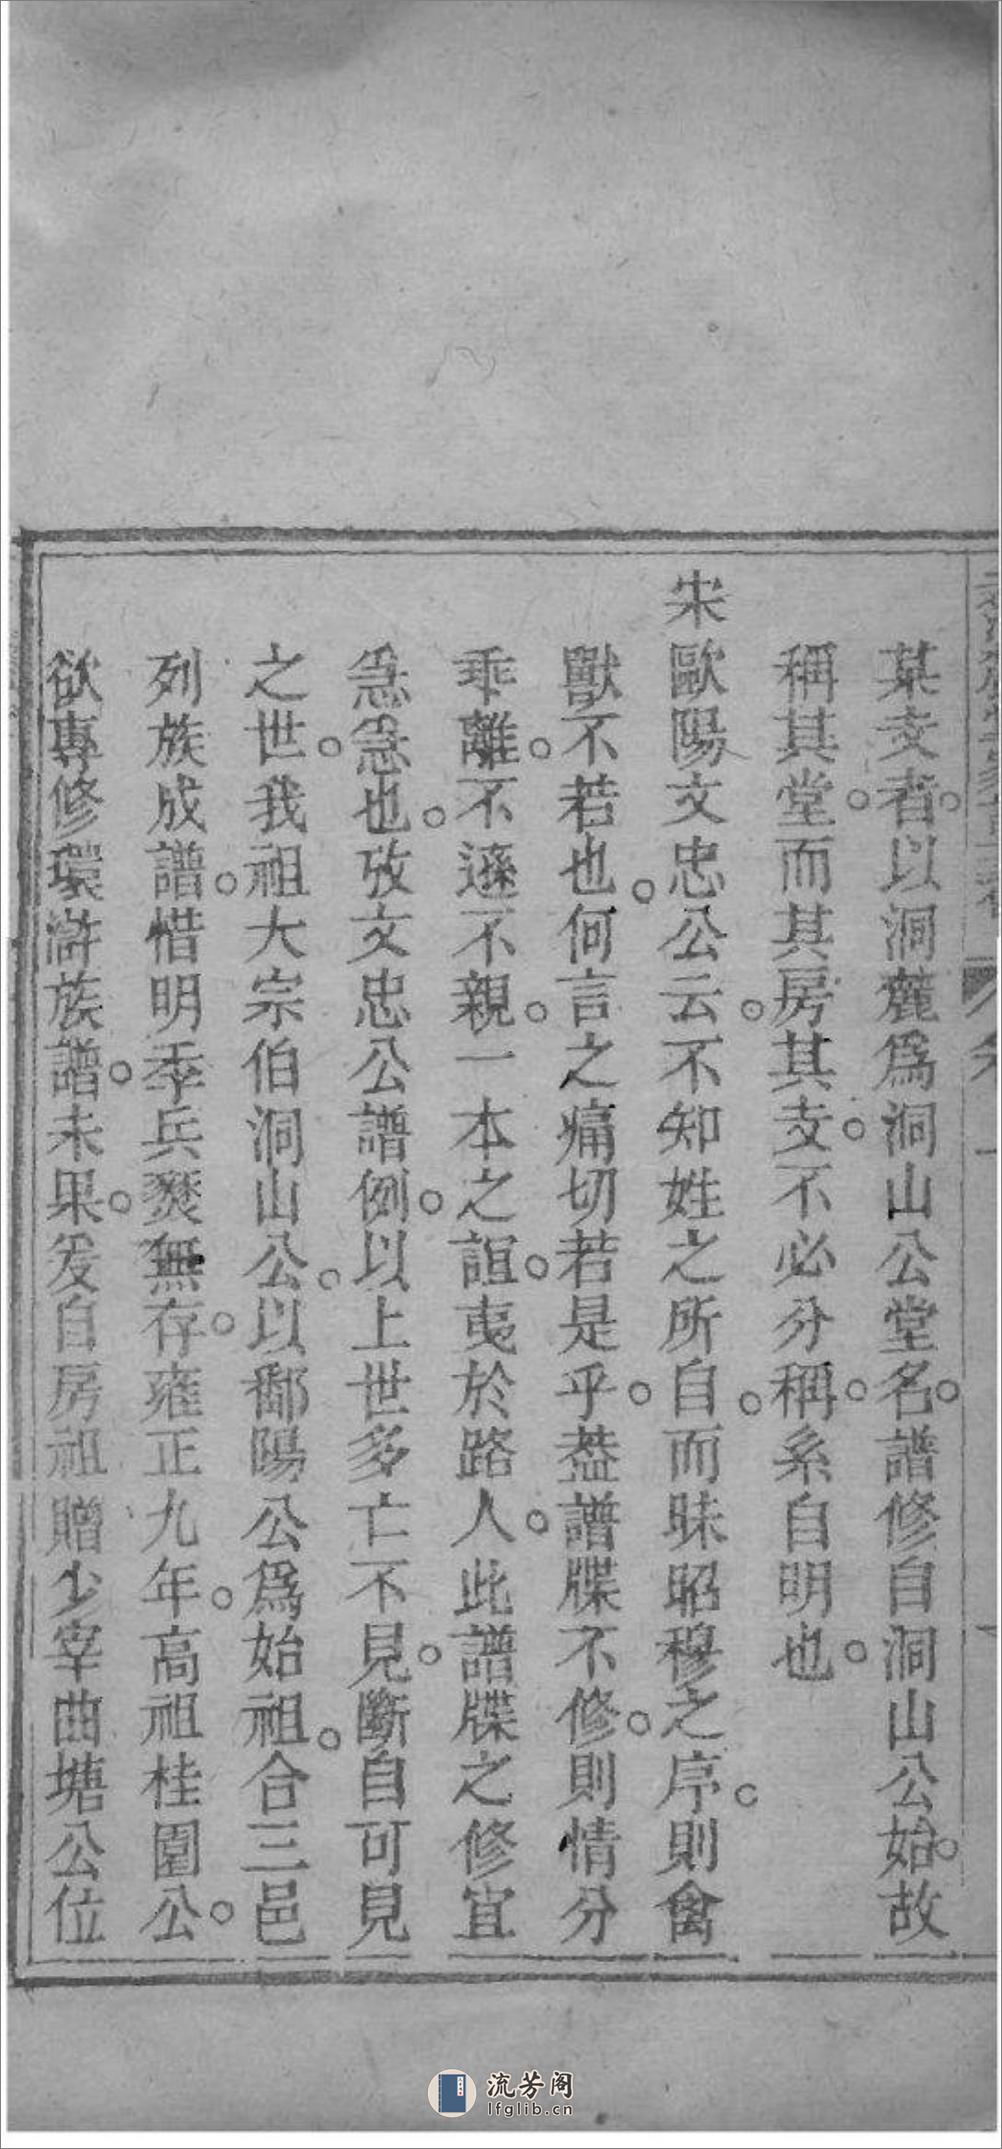 某支者以洞麓爲洞山公堂名譜修自洞山公始故
稱其堂而其房其支不必分稱系自明也
宋歐陽文忠公云不知姓之所自而昧昭穆之序則禽
獸不若也何言之痛切若是乎葢譜牒不修則情分
乖離不遜不親一本之誼夷於路人此譜牒之修宜
急急也攷文忠公譜例以上世多亡不見斷自可見
之世我祖大宗伯洞山公以鄱陽公爲始祖合三邑
列族成譜惜明季兵燹無存雍正九年高祖桂園公
欲專修環滸族譜未果爰自房祖贈少宰曲塘公位
流芳阁
lfglib.cn